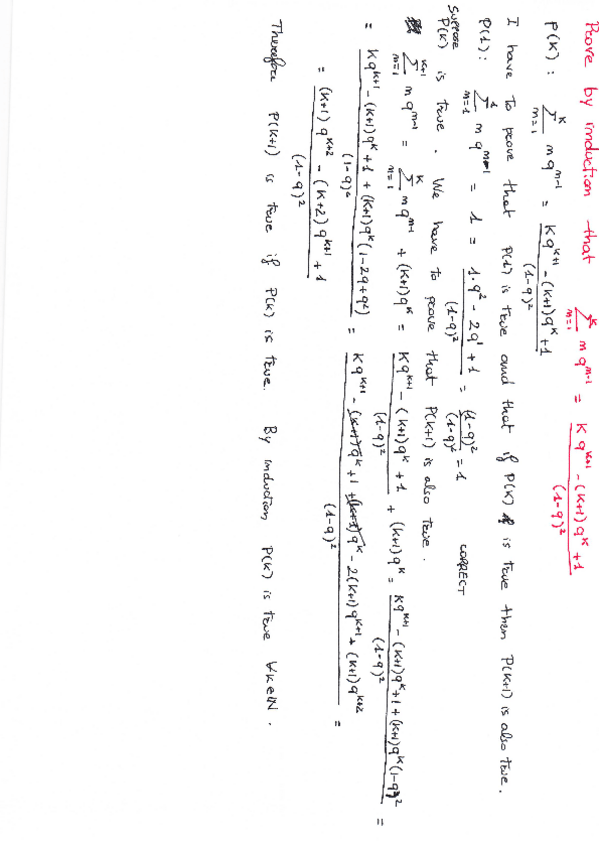 Prove by induction that \sum_{m=1}^{k} m q^{m-1} = \frac{k q^{k+1} - (k+1) q^k + 1}{(1-q)^2}
P(k): \sum_{m=1}^{k} m q^{m-1} = \frac{k q^{k+1} - (k+1) q^k + 1}{(1-q)^2}
I have to prove that P(1) is true and that if P(k) is true then P(k+1) is also true.
P(1): \sum_{m=1}^{1} m q^{m-1} = 1 = \frac{1 \cdot q^2 - 2q^1 + 1}{(1-q)^2} = \frac{(1-q)^2}{(1-q)^2} = 1 CORRECT
Suppose P(k) is true. We have to prove that P(k+1) is also true.
\sum_{m=1}^{k+1} m q^{m-1} = \sum_{m=1}^{k} m q^{m-1} + (k+1) q^k = \frac{k q^{k+1} - (k+1) q^k + 1}{(1-q)^2} + (k+1) q^k = \frac{k q^{k+1} - (k+1) q^k + 1 + (k+1) q^k (1-q)^2}{(1-q)^2} =
= \frac{k q^{k+1} - (k+1) q^k + 1 + (k+1) q^k (1 - 2q + q^2)}{(1-q)^2} = \frac{k q^{k+1} - (k+1) q^k + 1 + (k+1) q^k - 2(k+1) q^{k+1} + (k+1) q^{k+2}}{(1-q)^2} =
= \frac{(k+1) q^{k+2} - (k+2) q^{k+1} + 1}{(1-q)^2}
Therefore P(k+1) is true if P(k) is true. By induction P(k) is true ∀k∈ℕ.